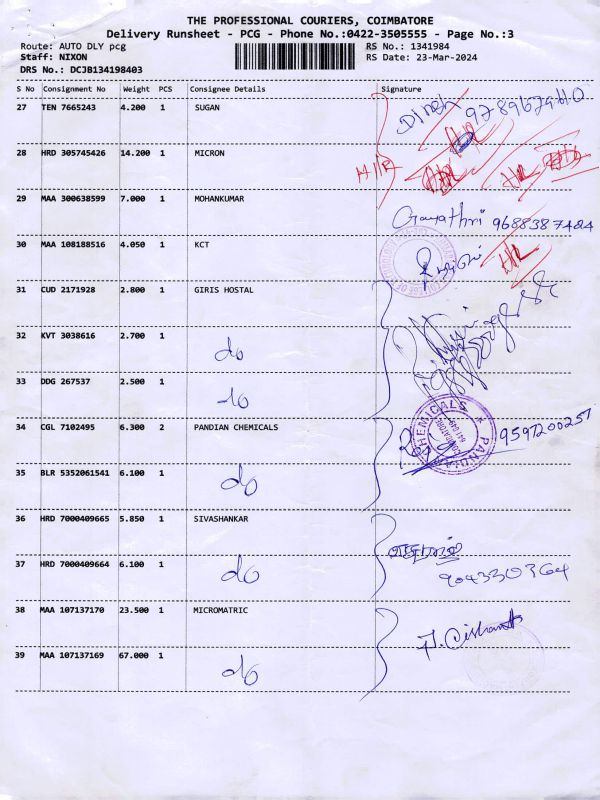 THE PROFESSIONAL COURIERS, COIMBATORE
Delivery Runsheet - PCG - Phone No.:0422-3505555 - Page No.:3
Route: AUTO DLY pcg RS No.: 1341984
Staff: NIXON RS Date: 23-Mar-2024
DRS No.: DCJB134198403
S No Consignment No Weight PCS Consignee Details Signature
27 TEN 7665243 4.200 1 SUGAN
28 HRD 305745426 14.200 1 MICRON
29 MAA 300638599 7.000 1 MOHANKUMAR Gayathri 9688387484
30 MAA 108188516 4.050 1 KCT
31 CUD 2171928 2.800 1 GIRIS HOSTAL
32 KVT 3038616 2.700 1 do
33 DDG 267537 2.500 1 do
34 CGL 7102495 6.300 2 PANDIAN CHEMICALS 9597200257
35 BLR 5352061541 6.100 1 do
36 HRD 7000409665 5.850 1 SIVASHANKAR
37 HRD 7000409664 6.100 1 do 9043330364
38 MAA 107137170 23.500 1 MICROMATRIC
39 MAA 107137169 67.000 1 do